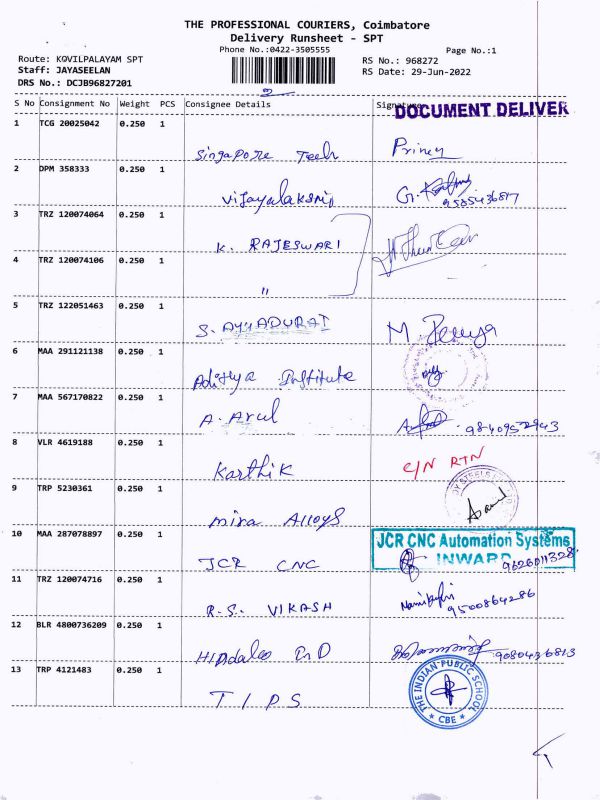 THE PROFESSIONAL COURIERS, Coimbatore
Delivery Runsheet - SPT
Phone No.:0422-3505555
Page No.:1
Route: KOVILPALAYAM SPT
RS No.: 968272
Staff: JAYASEELAN
RS Date: 29-Jun-2022
DRS No.: DCJB96827201
S No Consignment No Weight PCS Consignee Details Signature
DOCUMENT DELIVER
1 TCG 20025042 0.250 1
Singapore Tech
2 DPM 358333 0.250 1
Vijayalakshmi
9585436817
3 TRZ 120074064 0.250 1
K. RAJESWARI
4 TRZ 120074106 0.250 1
"
5 TRZ 122051463 0.250 1
S. AYYADURAI M.
6 MAA 291121138 0.250 1
Aditya Institute
7 MAA 567170822 0.250 1
A. Arul 9840952943
8 VLR 4619188 0.250 1
Karthik C/N RTN
9 TRP 5230361 0.250 1
Mira Alloys
10 MAA 287078897 0.250 1
JCR CNC Automation Systems
INWARD
JCR CNC 9626011328
11 TRZ 120074716 0.250 1
R.S. VIKASH 9500864286
12 BLR 4800736209 0.250 1
Hindalco IND 9080436813
13 TRP 4121483 0.250 1
TIPS
THE INDIAN PUBLIC SCHOOL
CBE